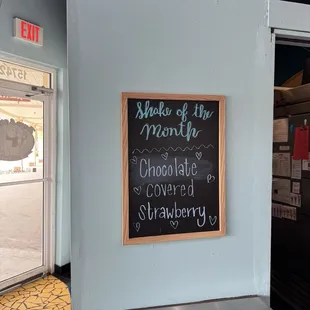 EXIT
15742
Shake of the
month
Chocolate
covered
strawberry